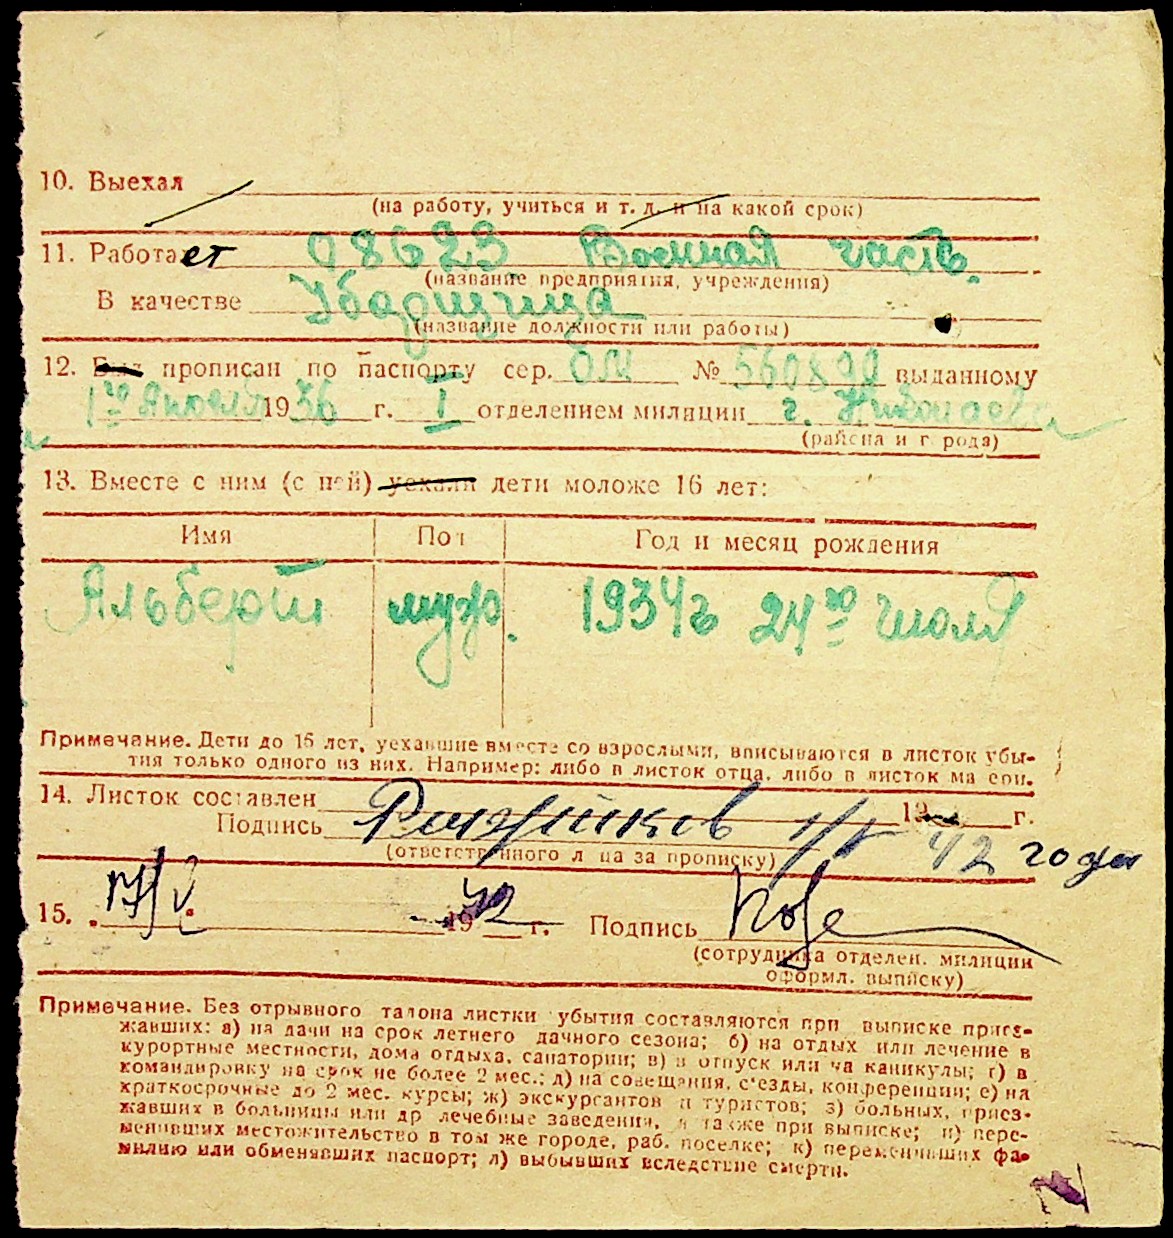 10. Выехал
(на работу, учиться и т. д. и на какой срок)
11. Работает 08623 Военная часть.
(название предприятия, учреждения)
В качестве Уборщица
(название должности или работы)
12. прописан по паспорту сер. ОМ № 560890 выданному
1го Апреля 1936 г. I отделением милиции г. Николаева
(района и города)
13. Вместе с ним (с ней) уехали дети моложе 16 лет:
Имя Пол Год и месяц рождения
Альберт муж. 1934г 24го Июля
Примечание. Дети до 16 лет, уехавшие вместе со взрослыми, вписываются в листок убы-
тия только одного из них. Например: либо в листок отца, либо в листок матери.
14. Листок составлен 19 г.
Подпись 42 года
(ответственного лица за прописку)
15. 17/V 1942 г. Подпись
(сотрудника отделен. милиции
оформл. выписку)
Примечание. Без отрывного талона листки убытия составляются при выписке приез-
жавших: а) на дачи на срок летнего дачного сезона; б) на отдых или лечение в
курортные местности, дома отдыха, санатории; в) в отпуск или на каникулы; г) в
командировку на срок не более 2 мес.; д) на совещания, с'езды, конференции; е) на
краткосрочные до 2 мес. курсы; ж) экскурсантов и туристов; з) больных, приез-
жавших в больницы или др лечебные заведения, а также при выписке; и) пере-
менивших местожительство в том же городе, раб. поселке; к) переменивших фа-
милию или обменявших паспорт; л) выбывших вследствие смерти.